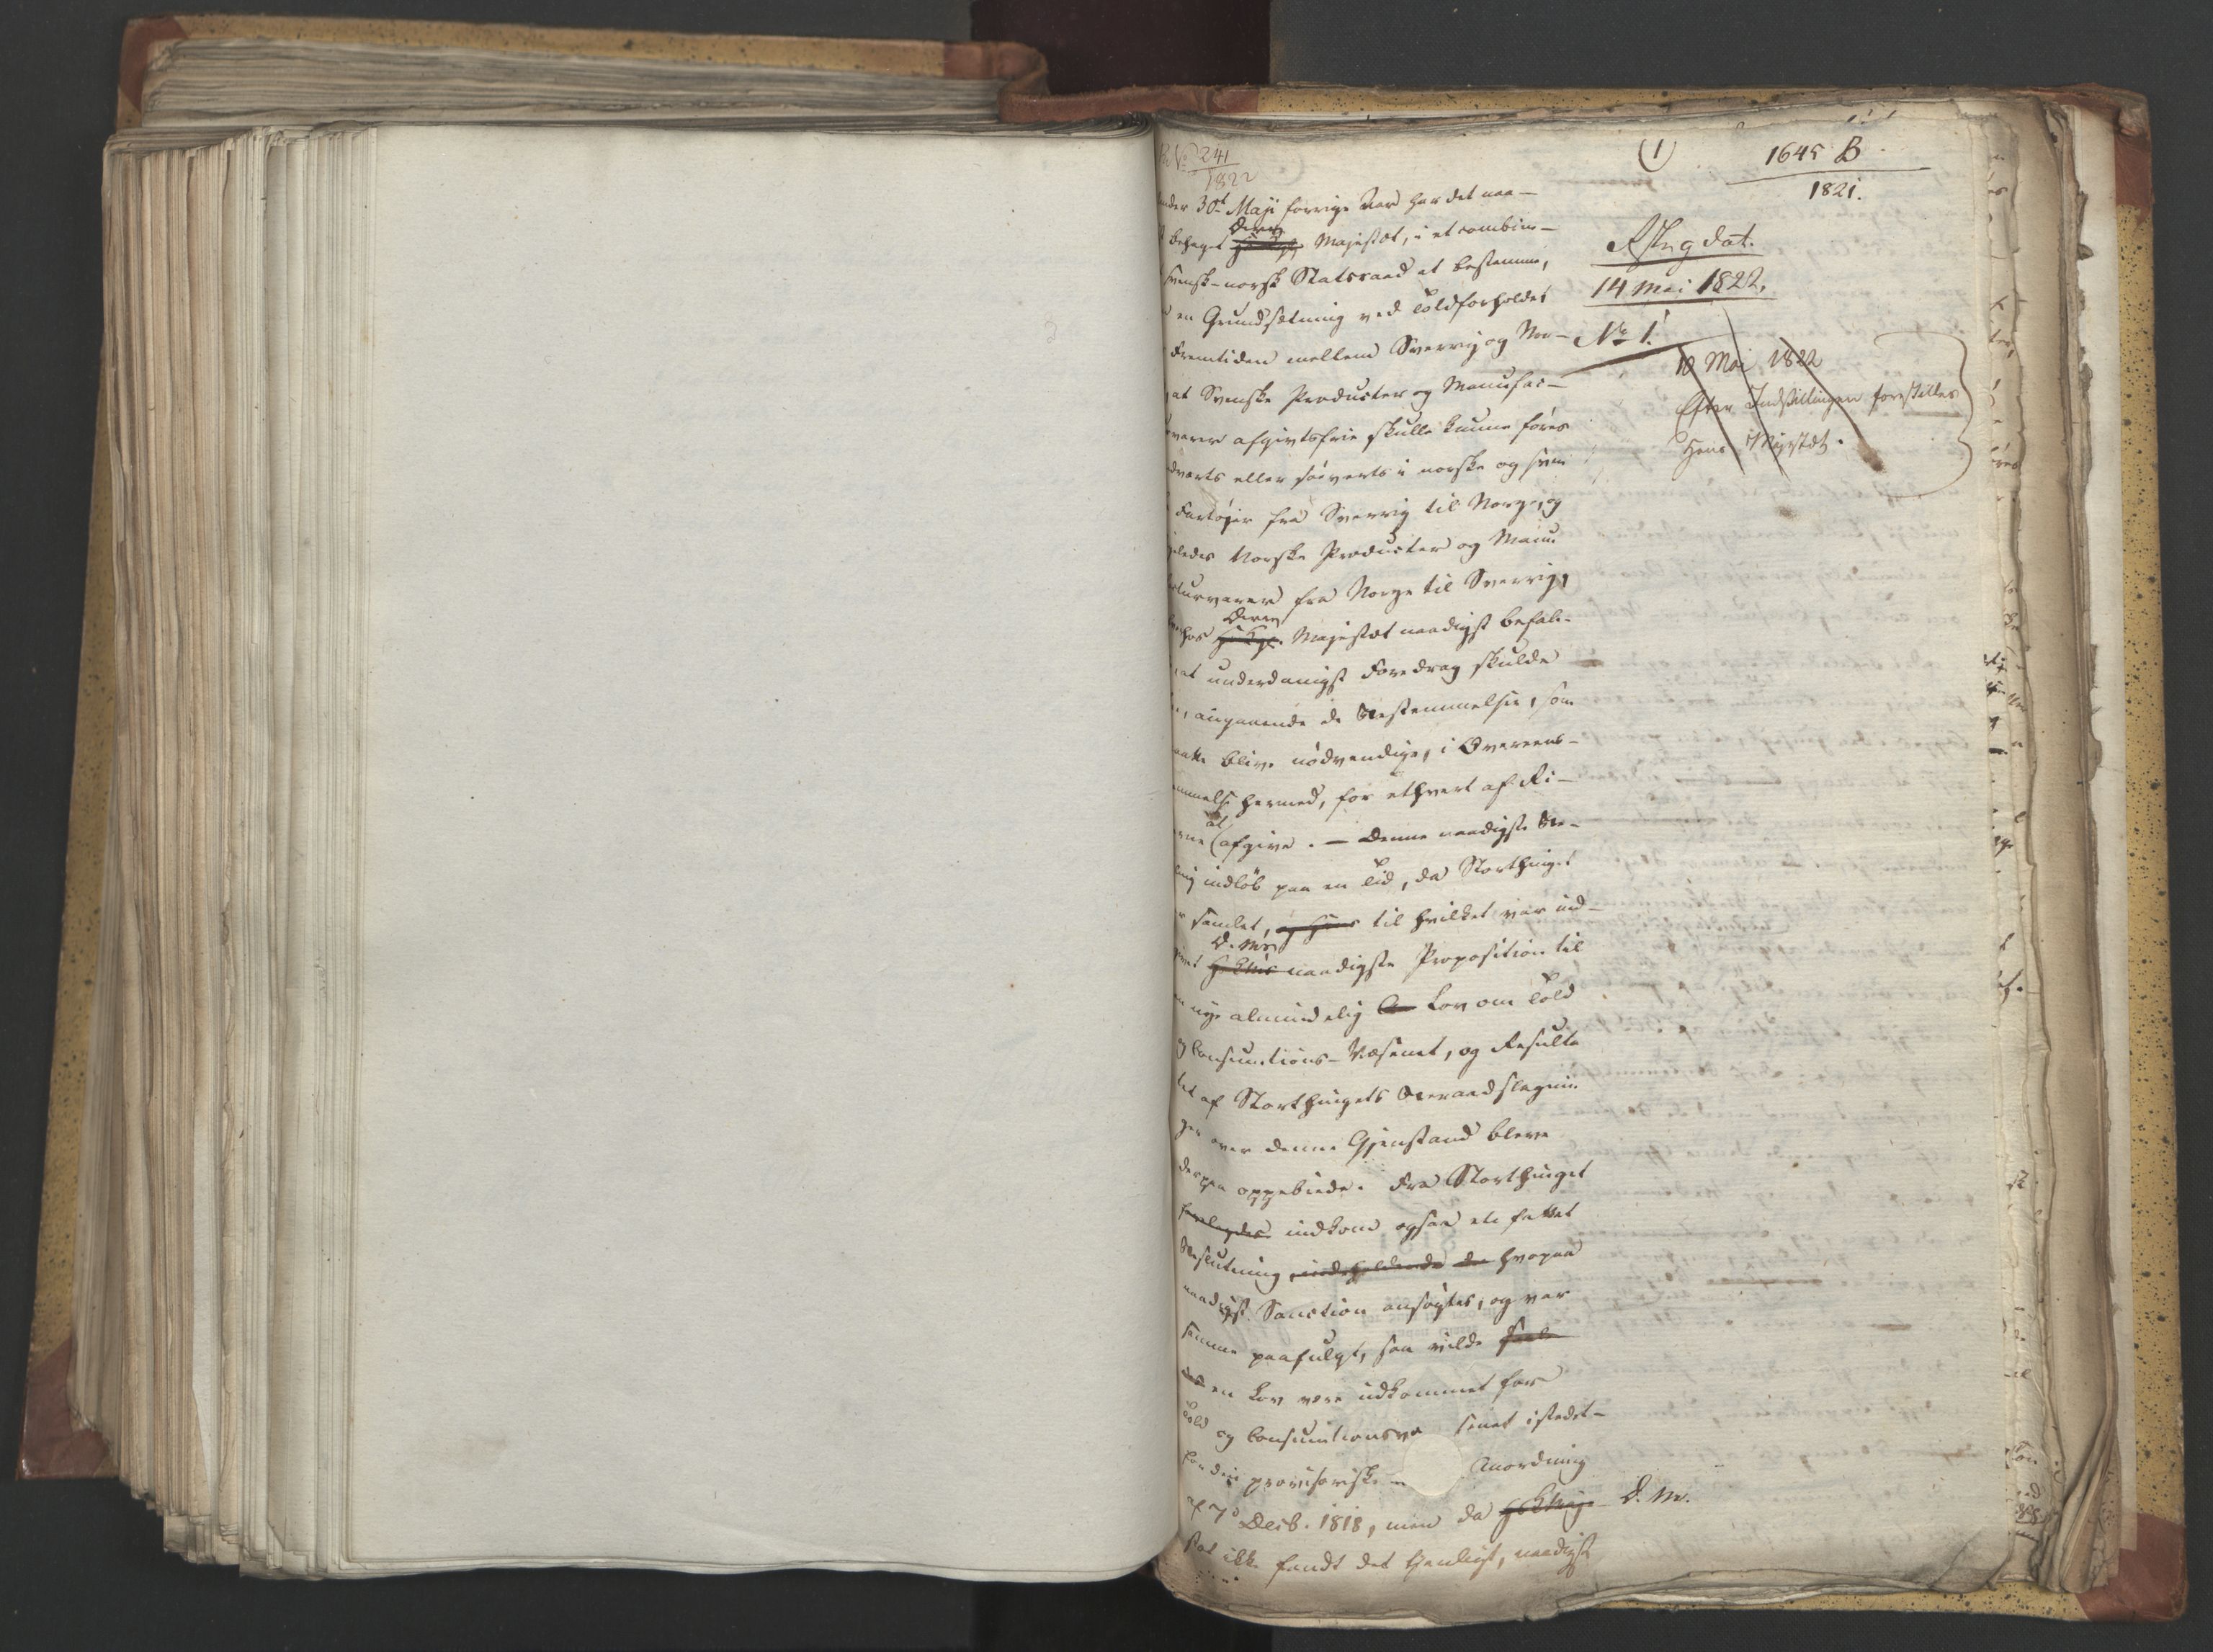 241
1822
(1)
1645 B
1821.
Rstng dat.
14 Mai 1822,
No 1.
10 Mai 1822
Efter Indstillingen forestilles
Hans Majestæt.
under 30te Maji forrige Aar har det naa-
behaget Deres Majestæt, i et combine-
svensk-norsk Statsraad at bestemme,
en Grundsætning ved Toldforholdet
Fremtiden mellem Sverrig og Nor-
at Svenske Producter og Manufac-
varer afgivtsfrie skulle kunne føres
dverts eller søeverts i norske og sven
Fartøjer fra Sverrig til Norge, og
eledes Norske Producter og Manu
turvarer fra Norge til Sverrig,
hos Deres Majestæt naadigst befale-
at underdanigst Foredrag skulde
angaaende de Bestemmelser, som
maatte blive nødvendige, i Overeens-
mmelse hermed, for ethvert af Ri-
erne at afgive. — Denne naadigste Be-
ing indløb paa en Tid, da Storthinget
samlet, til hvilket var ind-
givet D. Ms naadigste Proposition til
en nye almindelig Lov om Told
og Consumtions-Væsenet, og Resulta
tet af Storthingets Beraadslagnin
ger over denne Gjenstand bleve
derpaa oppebiede. Fra Storthinget
indkom ogsaa en fattet
Beslutning hvorpaa
naadigst Sanction ansøgtes, og var
samme paafulgt, saa vilde
en Lov være udkommet for
Told og Consumtionsvæsenet istedet-
for den provisoriske Anordning
af 7de Decb. 1818, men da D. M.
stæt ikke fandt det tjenligt, naadigst